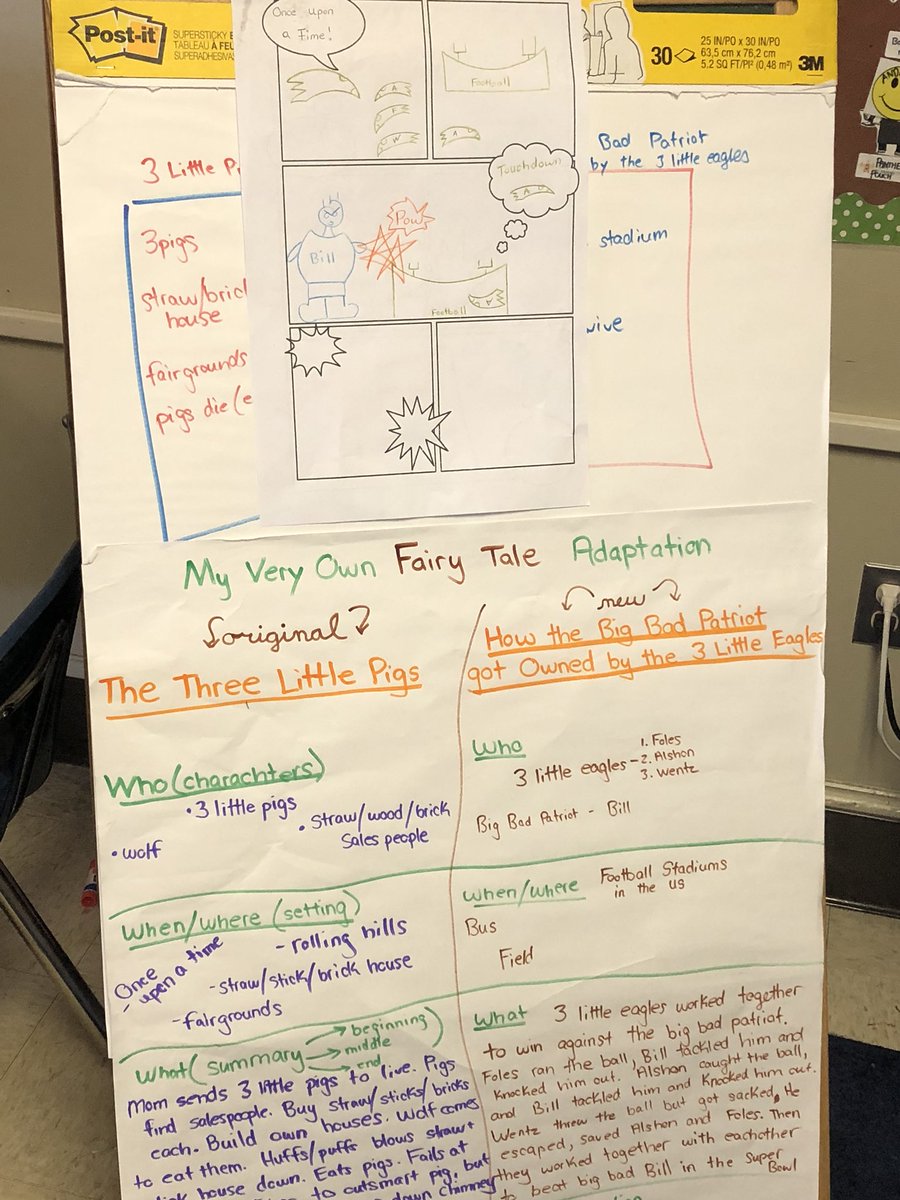 Post-it
SUPERSTICKY
TABLEAU À FEU
SUPERADHÉSIVA
30
25 IN/PO x 30 IN/PO
63,5 cm x 76,2 cm
5.2 SQ FT/PI² (0,48 m²)
3M
Once upon
a Time!
A
F
W
Football
A
3 Little Pi
Bad Patriot
by the 3 little eagles
3pigs
straw/bric
house
fairgrounds
pigs die (e
stadium
Touchdown
A
Pow
Bill
Football
A
My Very Own Fairy Tale Adaptation
original
The Three Little Pigs
Who (charachters)
• 3 little pigs
• Straw/wood/brick
Sales people
• wolf
When/where (setting)
- Once
upon a time
- rolling hills
- straw/stick/brick house
- fairgrounds
What (summary
beginning
middle
end
)
Mom sends 3 little pigs to live. Pigs
find salespeople. Buy straw/sticks/bricks
each. Build own houses. Wolf comes
to eat them. Huffs/puffs blows straw+
house down. Eats pigs. Fails at
to outsmart pig, but
down chimney
new
How the Big Bad Patriot
got Owned by the 3 Little Eagles
Who
3 little eagles - 1. Foles
2. Alshon
3. Wentz
Big Bad Patriot - Bill
When/where
Football Stadiums
in the US
Bus
Field
What 3 little eagles worked together
to win against the big bad patriot.
Foles ran the ball, Bill tackled him and
Knocked him out. Alshon caught the ball,
and Bill tackled him and Knocked him out.
Wentz threw the ball but got sacked. He
escaped, saved Alshon and Foles. Then
they worked together with eachother
to beat big bad Bill in the Super
Bowl